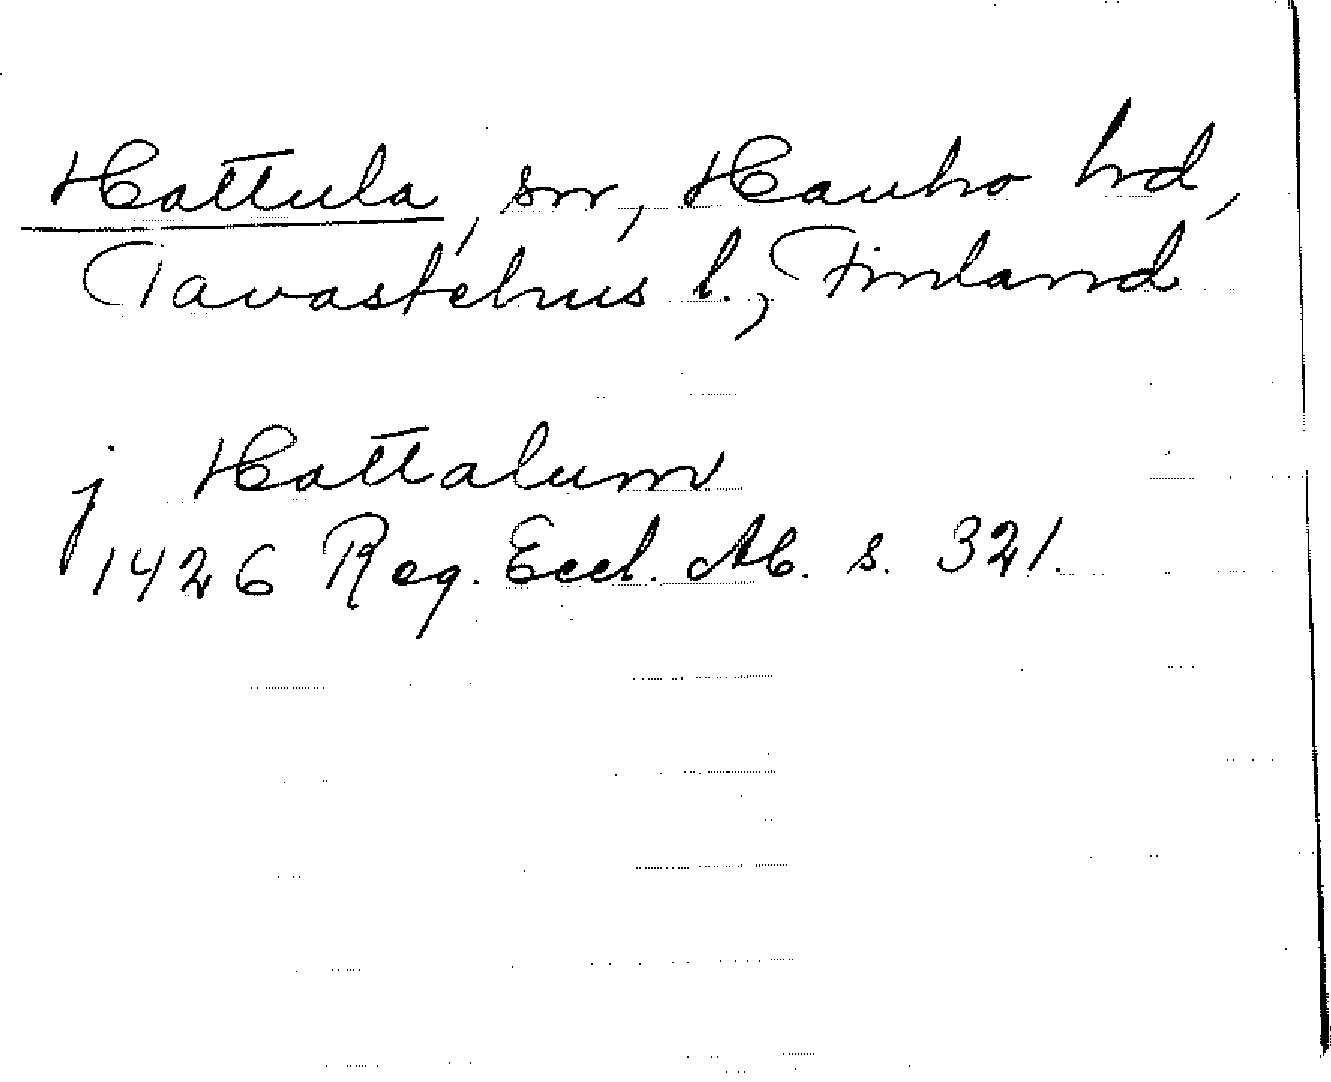 Hattula, sn, Hauho hd,
Tavastehus l., Finland
j Hattalum
1426 Reg. Eccl. Ab. s. 321.